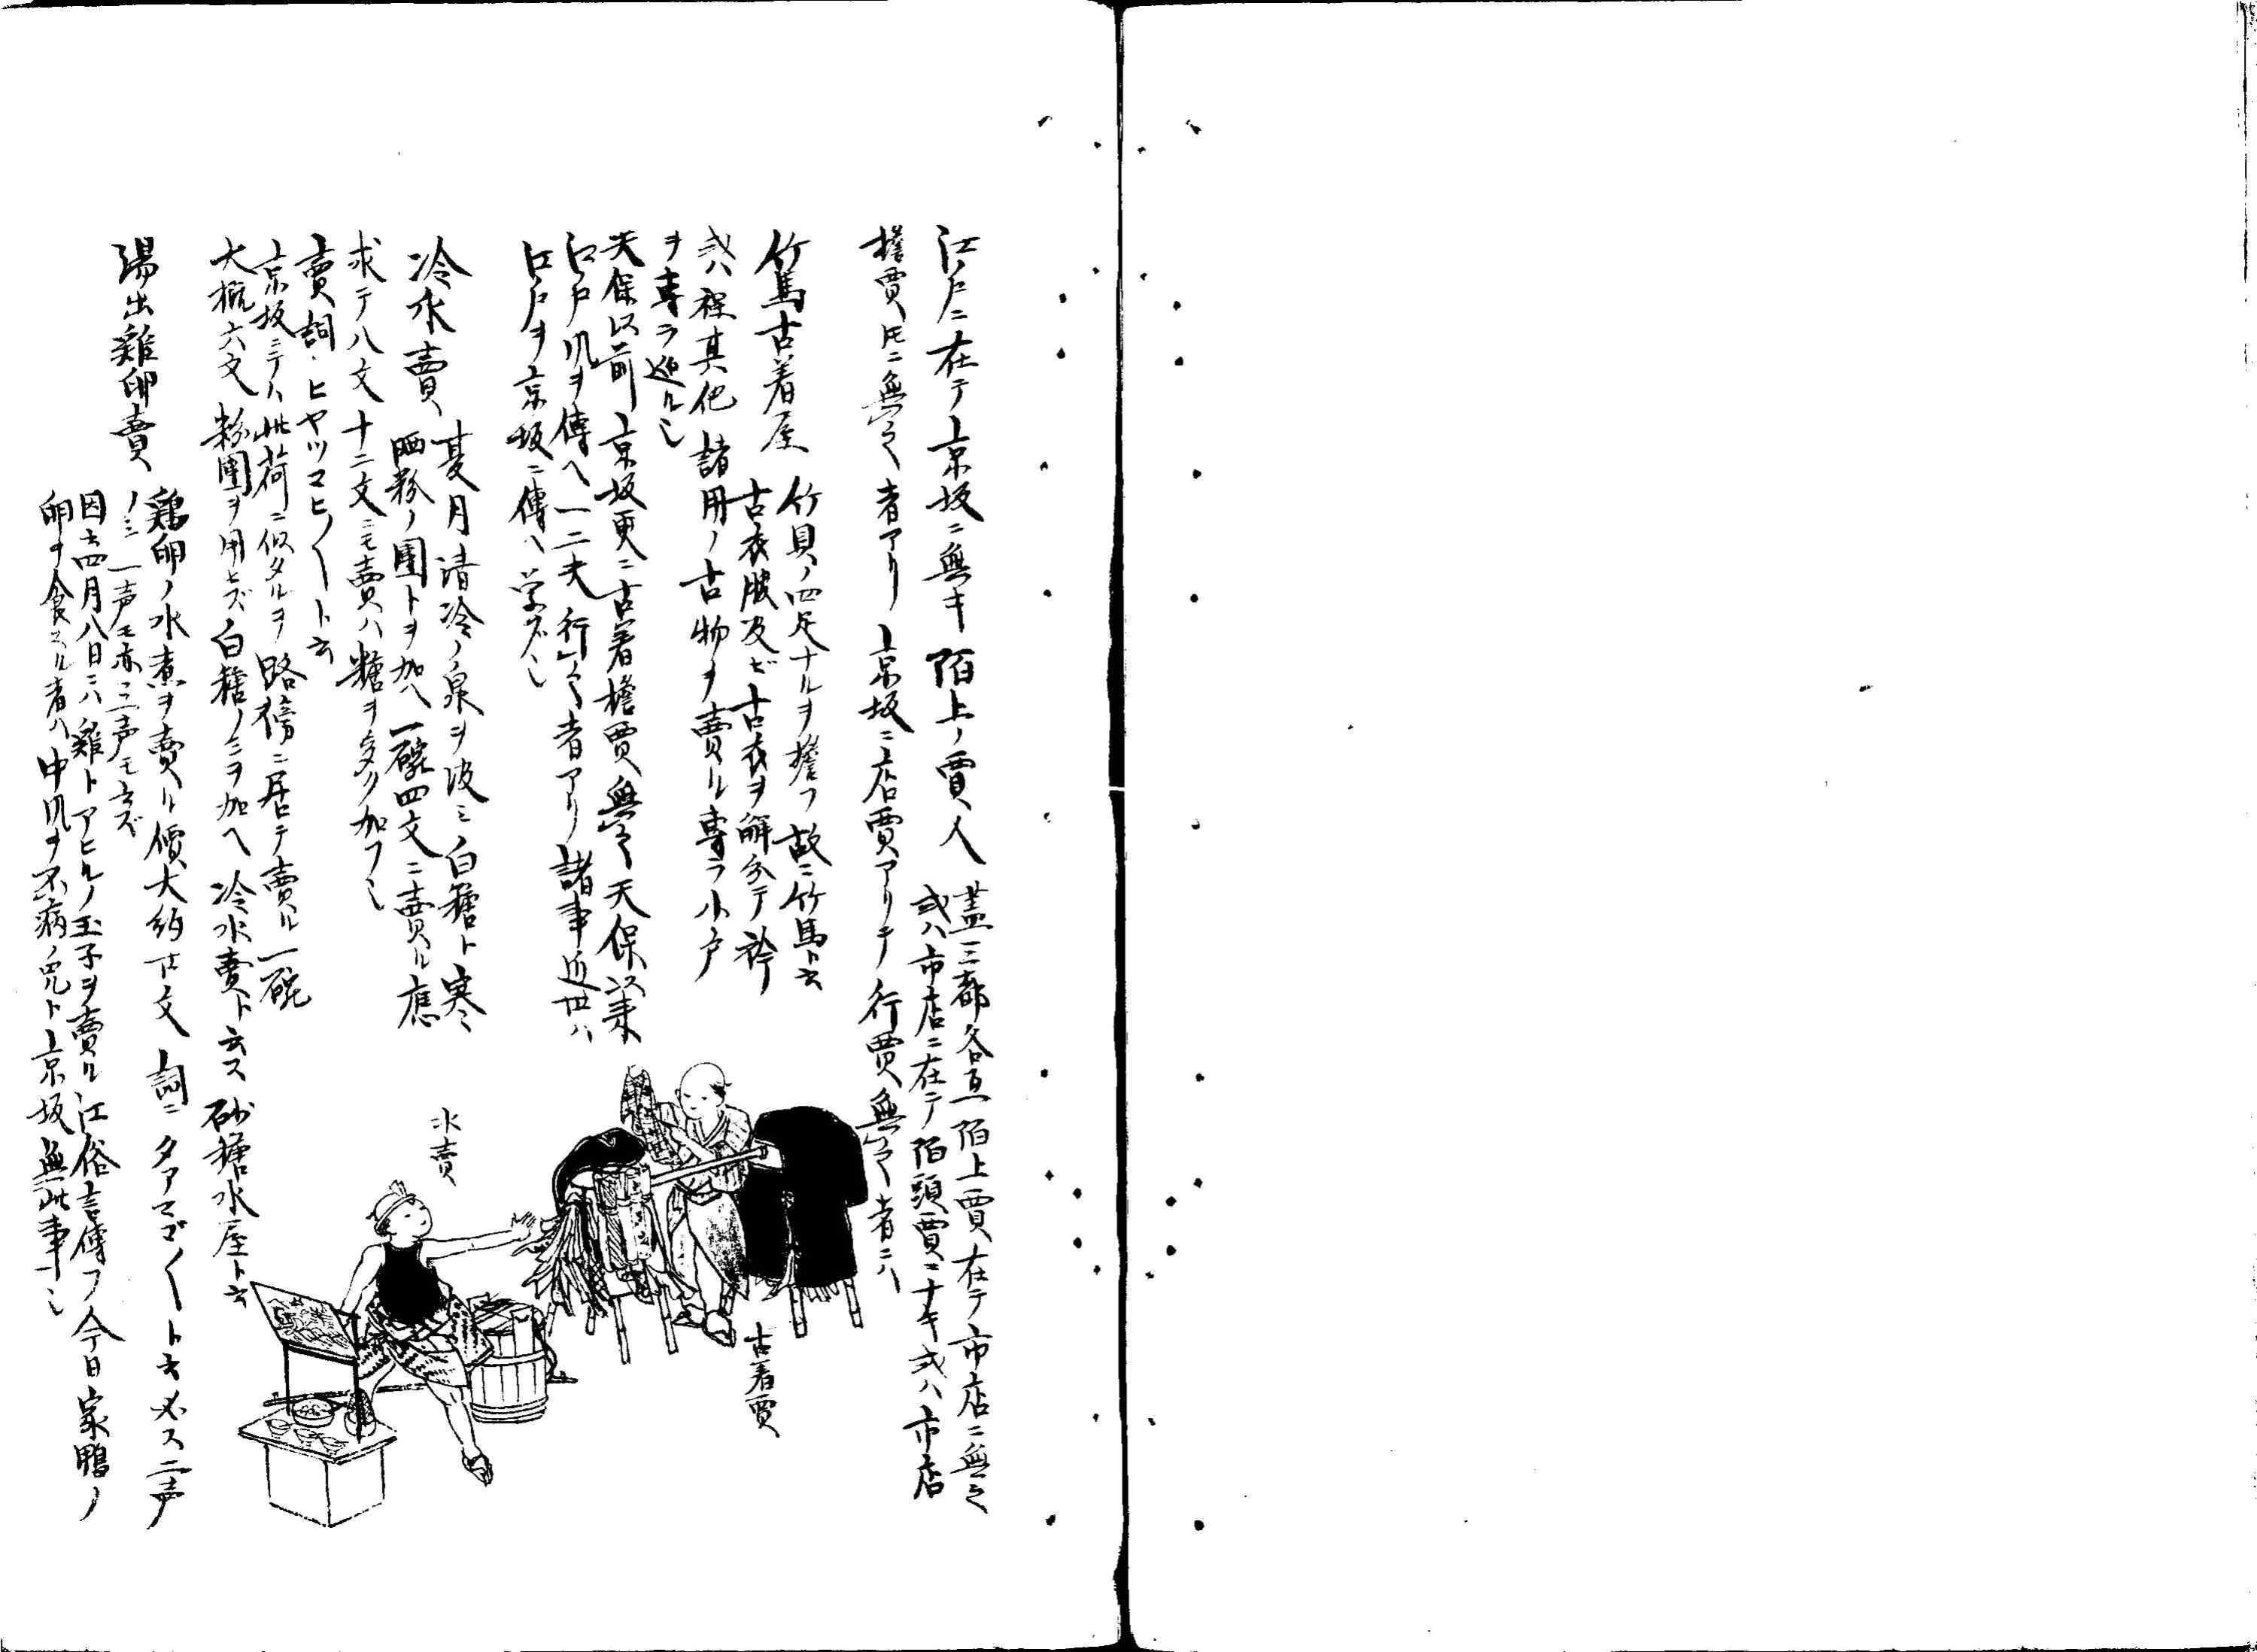 江戸ニ在テ京坂ニ無キ陌上ノ賈人
蓋三都各互陌上賈在テ市店ニ無之
或ハ市店ニ在テ陌頭賈ニナキ或ハ市店
擔賈トモニ無之者アリ京坂ニ店賈アリテ行賈無之者ニハ
竹馬古着屋
竹具ノ四足ナルヲ擔フ故ニ竹馬ト云
古衣服及ビ古衣ヲ解分テ衿
或ハ裡其他諸用ノ古物ヲ賣ル専ラ小戸
ヲ専ラ巡ル也
天保以前京坂更ニ古着擔賈無之天保以来
江戸風ヲ傳ヘ一二夫行之者アリ諸事近世ハ
江戸ヲ京坂ニ傳ヘ学ブ也
冷水賣
夏月清冷ノ泉ヲ汲ミ白糖ト寒
晒粉ノ團トヲ加ヘ一碗四文ニ賣ル應
求テ八文十二文ニモ賣ハ糖ヲ多ク加フ也
賣詞ヒヤツコヒ〱ト云
京坂ニテハ此荷ニ似タルヲ路傍ニ居テ賣ル一碗
大概六文粉團ヲ用ヒズ白糖ノミヲ加ヘ冷水賣ト云ス砂糖水屋ト云
湯出雞卵賣
鶏卵ノ水煮ヲ賣ル價大約廿文詞ニタアマゴ〱ト云必ス二声
ノミ一声モ亦三声モ云ズ
因云四月八日ニハ雞トアヒルノ玉子ヲ賣ル江俗言傳フ今日家鴨ノ
卵ヲ食スル者ハ中風ヲ不病ノ呪ト京坂無此事也
古着賈
水賣